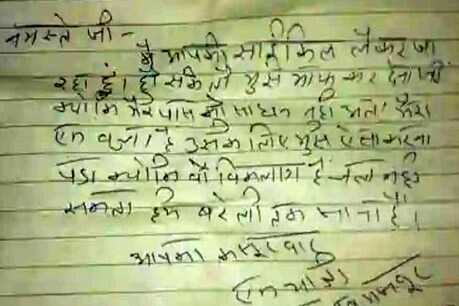 नमस्ते जी -
मै आपकी साईकिल लेकर जा
रहा हुं। हो सके तो मुझे माफ कर देना जी
क्योकि मेरे पास को साधन नही मेरा
एक बच्चा है उसके लिए मुझे ऐसा करना
पडा क्योकि वो विकलांग है चल नही
सकता हमे बरेली तक जाना है।
आपका कसूरवार
एक यात्री
मजदूर